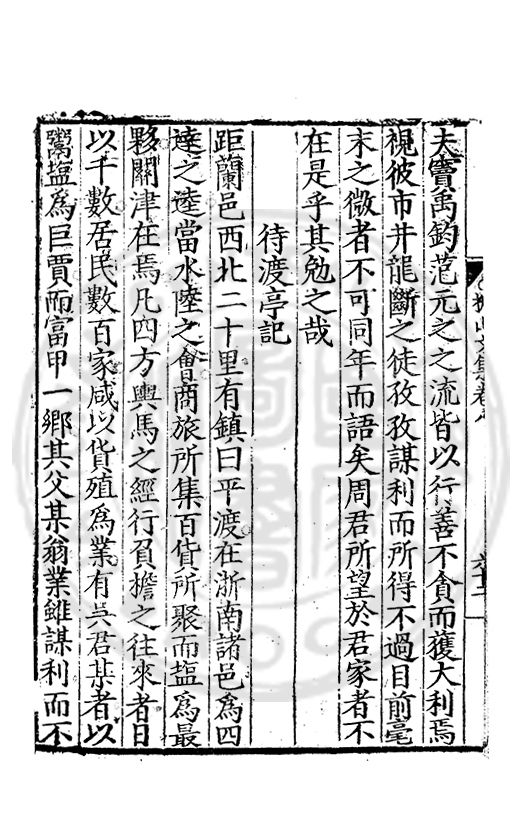 夫竇禹鈞范元之之流皆以行善不貪而獲大利焉
視彼市井龍斷之徒孜孜謀利而所得不過目前毫
末之微者不可同年而語矣周君所望於君家者不
在是乎其勉之哉
待渡亭記
距蘭邑西北二十里有鎮曰平渡在浙南諸邑爲四
達之逵當水陸之會商旅所集百貨所聚而塩爲最
夥關津在焉凡四方輿馬之經行負擔之往來者日
以千數居民數百家咸以貨殖爲業有吳君某者以
鬻塩爲巨賈而富甲一鄉其父某翁業雖謀利而不
山文集卷